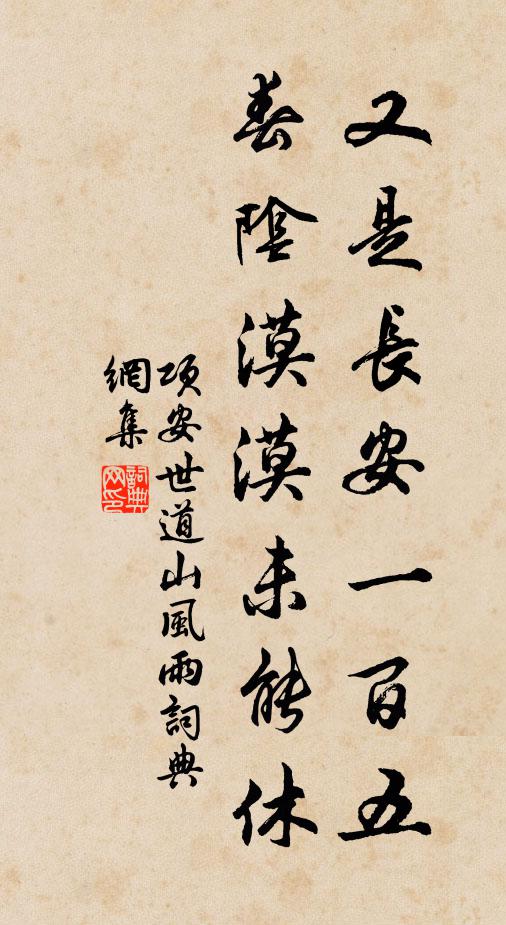 又是長安一百五
春陰漠漠未能休
項安世道山風雨詞典
網集
詞典網印